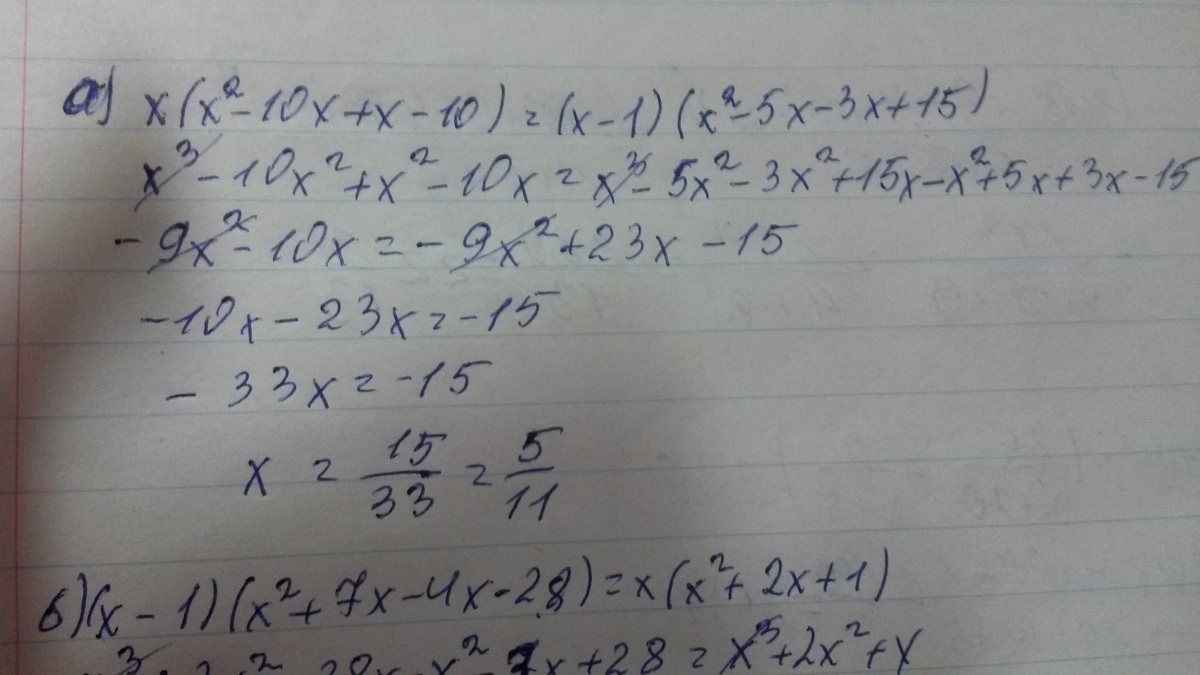 а) x(x²-10x+x-10)=(x-1)(x²-5x-3x+15)
x³-10x²+x²-10x=x³-5x²-3x²+15x-x²+5x+3x-15
-9x²-10x=-9x²+23x-15
-10x-23x=-15
-33x=-15
x = 15/33 = 5/11
б)(x-1)(x²+7x-4x-28)=x(x²+2x+1)
x²-7x+28=x³+2x²+x